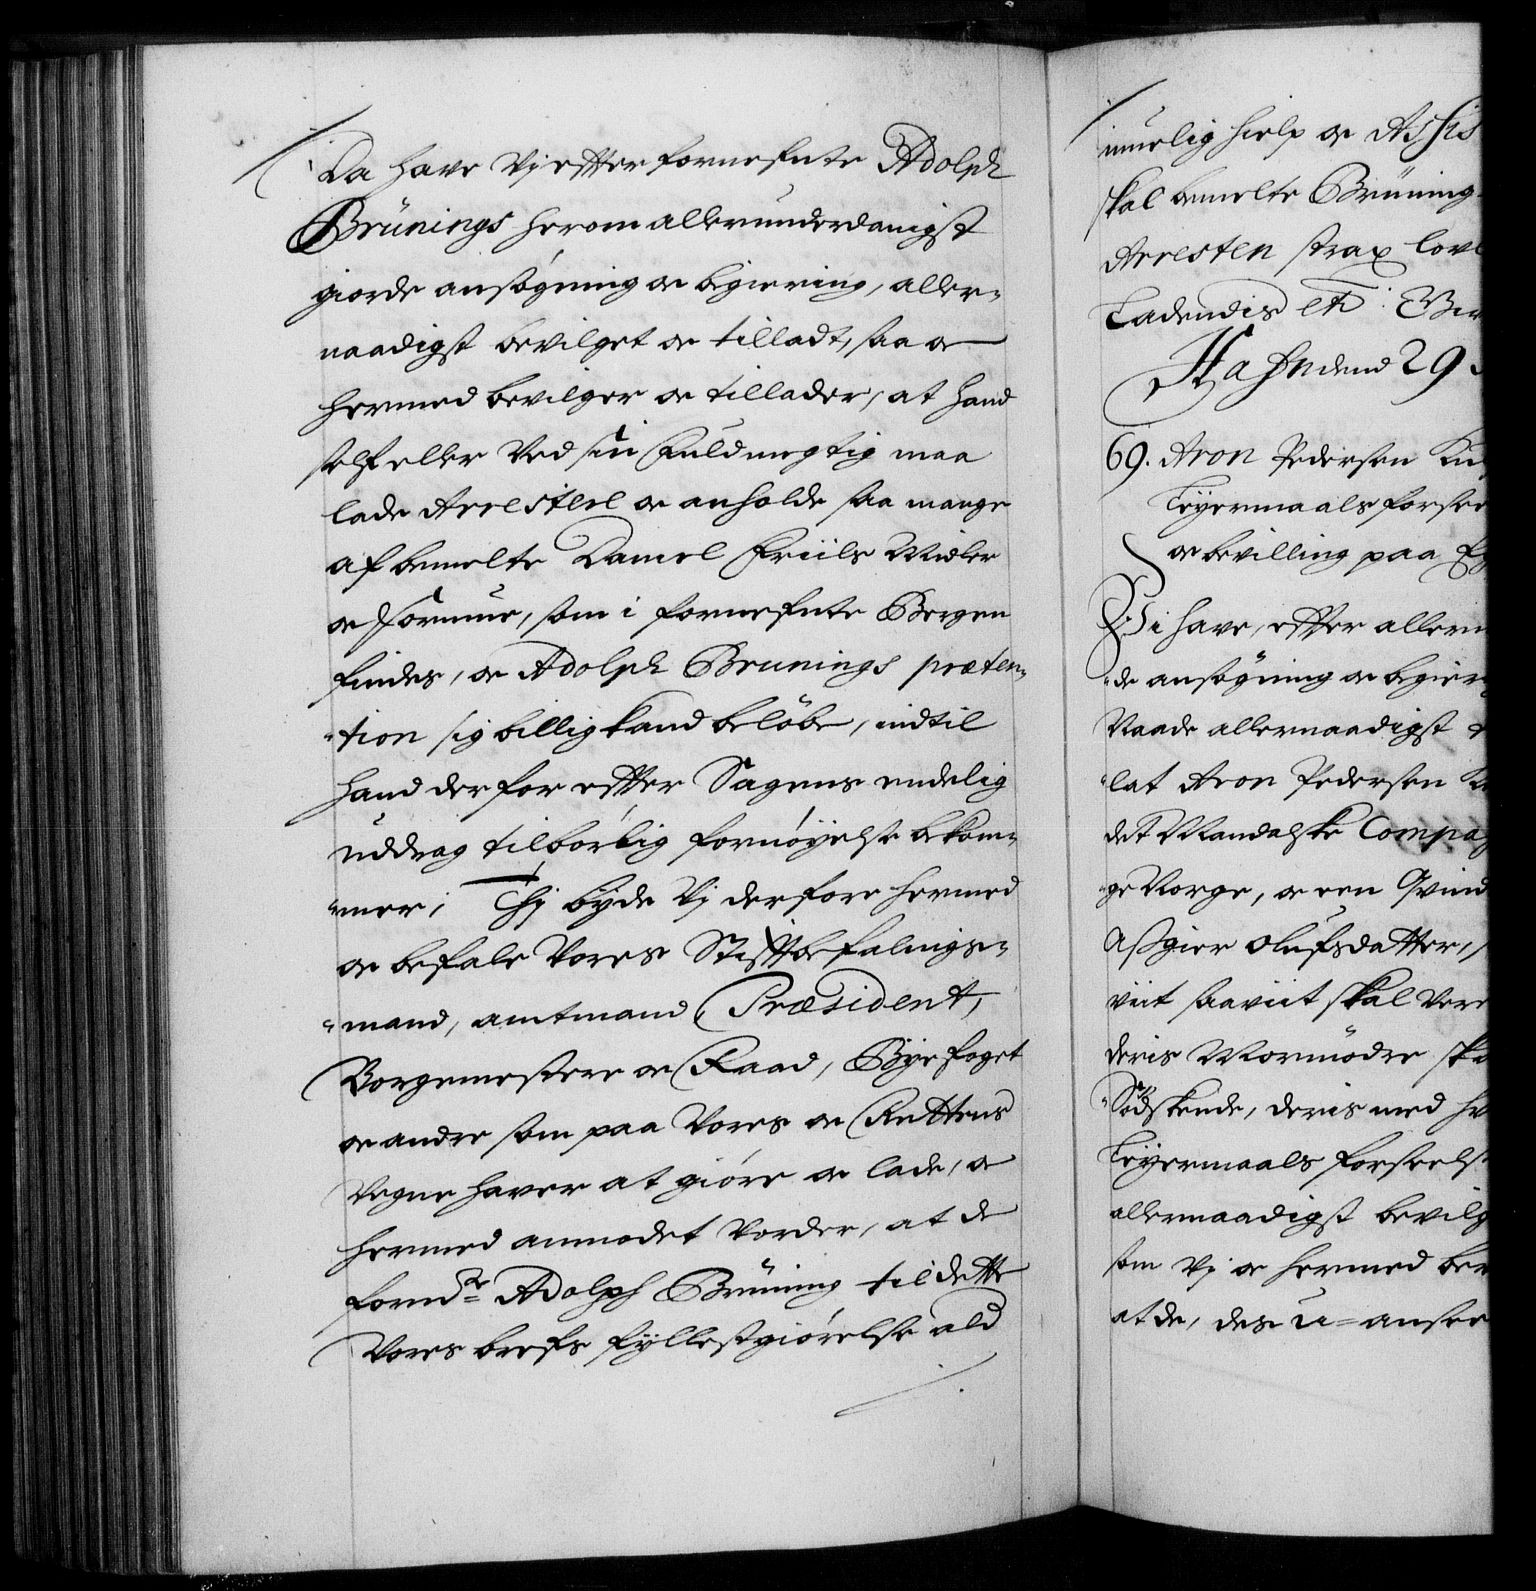 Da have Vj effter fornefnte Adolph
Brünings herom allerunderdanigst
giorde ansögning oc begiering, aller-
naadigst bevilget oc tilladt, saa oc
hermed bevilger oc tillader, at hand
self eller Ved sin Fuldmegtig maa
lade Arrestere oc anholde saa mange
af bemelte Daniel Friils Midler
oc Formue, som i fornefnte Bergen
findes, oc Adolph Brunings præten-
-tion sig billig kand belöbe, indtil
hand derfor effter Sagens endelig
uddrag tilbörlig fornöyelse bekom-
-mer; Thj byde Vj derfore hermed
oc befale Vores Stifftbefalings-
-mand, amtmand, Præsident,
Borgemestere oc Raad, Byefoget
oc andre som paa Vores oc Rettens
Vegne haver at giöre oc lade, oc
hermed anmodet Vorder, at de
fornd.te Adolph Brüning til dette
Vores brefs fyllestgiörelse ald
muelig hielp oc Assis
skal bemelte Brüning
Arresten strax lov
Ladendis etc: Giv
Hafn dend 29
69. Aron Pedersen
Leyermaals forsee
oc bevilling paa
Vi have, effter allerun
-de ansögning oc begier
Naade allernaadigst
-lat Aron Pedersen
det Mandalske Compag
-ge Norge, oc een Qvind
Aßgier Olufsdatter,
viit saaviit skal Vere
deris Mormödre
-Södskende, deris med
Leyermaals forseelse
allernaadigst bevilg
som Vj oc hermed bev
at de, des u-ansee